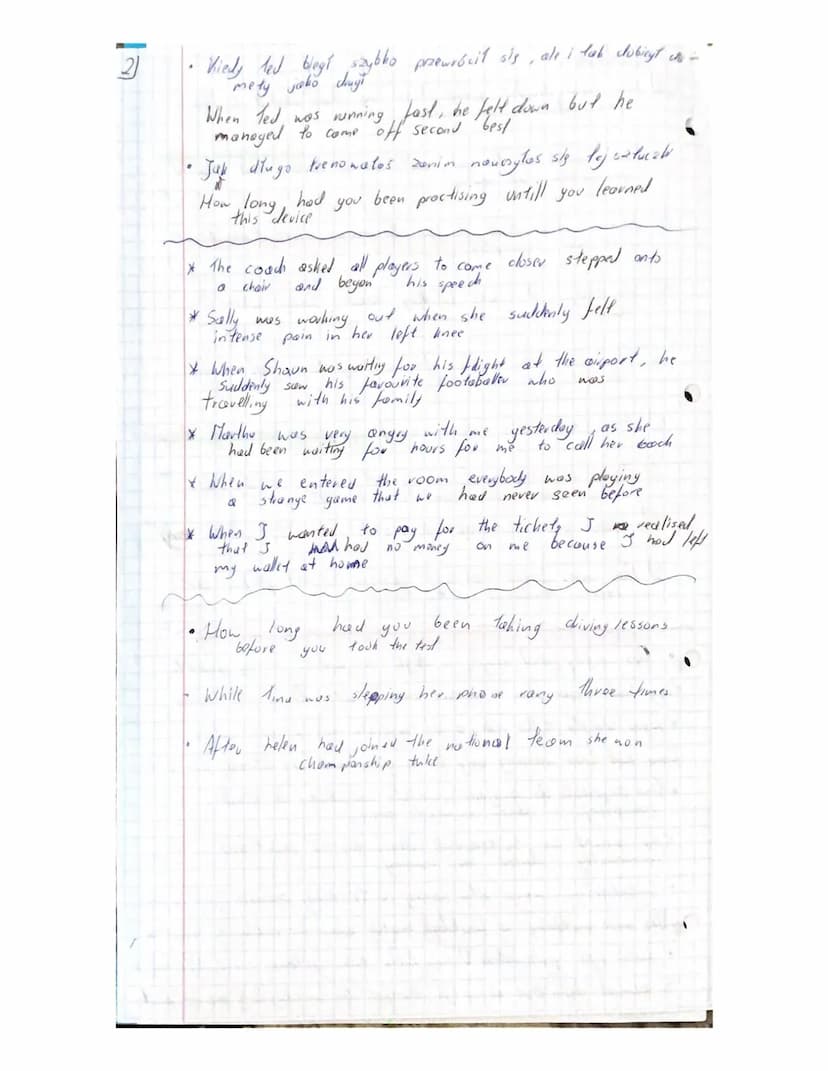 2)
• Kiedy Ted biegł szybko przewrócił się, ale i tak dobiegł do -
mety jako drugi
When Ted was running fast, he felt down but he
managed to come off second best
• Jak długo trenowałeś zanim nauczyłeś się tej sztuczki
How long had you been practising untill you learned
this device
* The coach asked all players to come closer stepped onto
a chair and began his speech
* Sally was working out when she suddenly felt
intense pain in her left knee
* When Shaun was waiting for his flight at the airport, he
suddenly saw his favourite footballer who was
travelling with his family
* Martha was very angry with me yesterday, as she
had been waiting for hours for me to call her back
* When we entered the room everybody was playing
a strange game that we had never seen before
* When I wanted to pay for the tickets I realised
that I had no money on me because I had left
my wallet at home
• How long had you been taking diving lessons
before you took the test
- While Tina was sleeping her phone rang three times
• After helen had joined the national team she won
championship twice